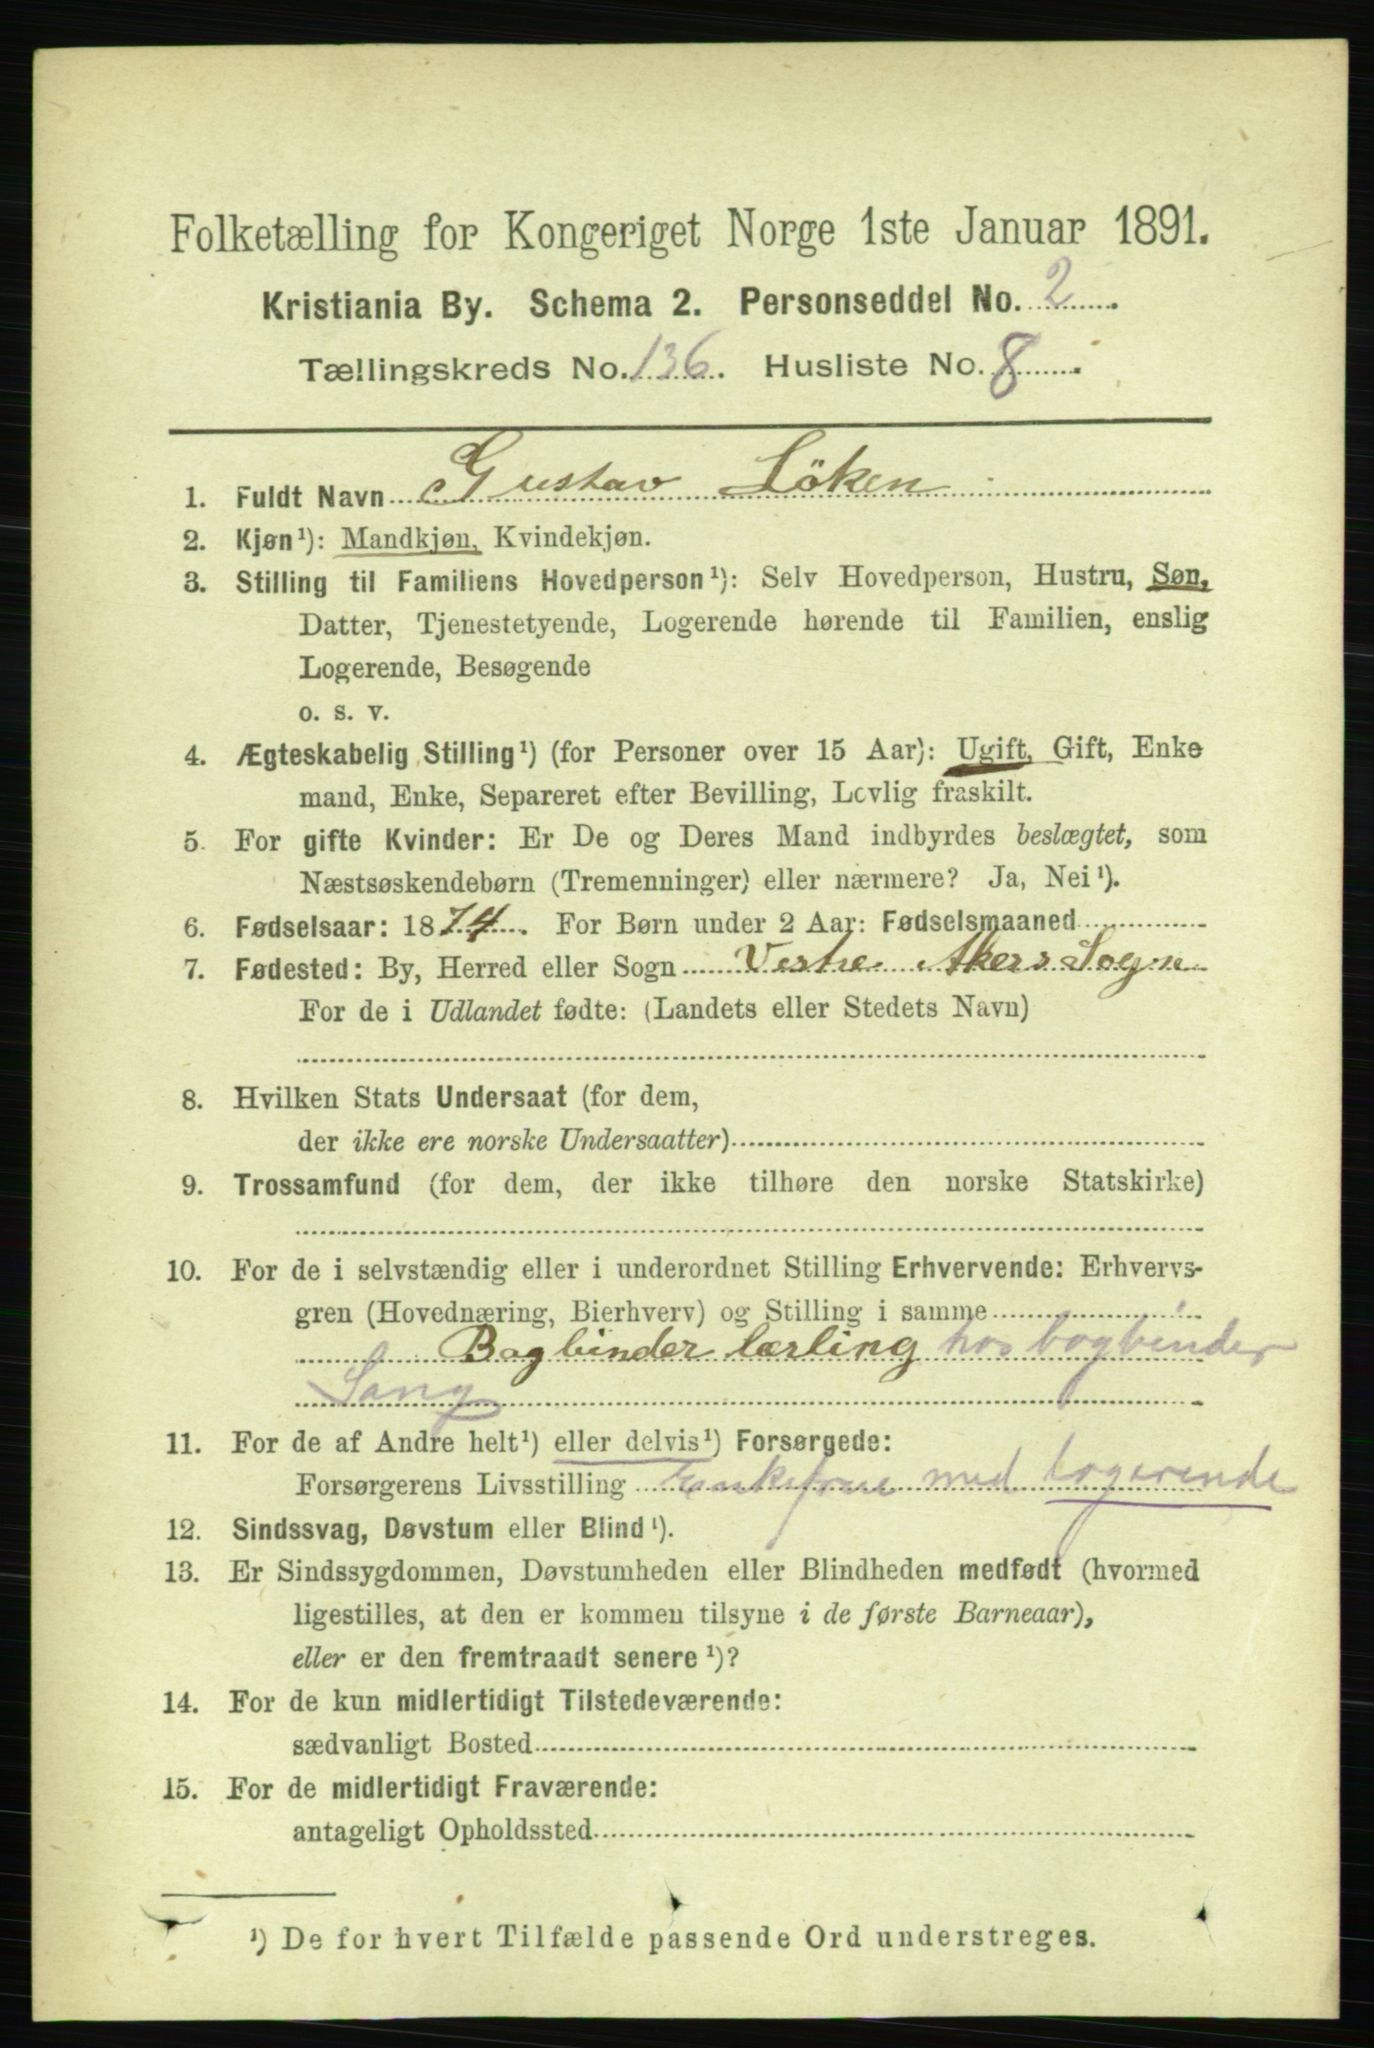 Folketælling for Kongeriget Norge 1ste Januar 1891.
Kristiania By. Schema 2. Personseddel No. 2
Tællingskreds No. 136. Husliste No. 8
1. Fuldt Navn Gustav Löken
2. Kjøn¹): Mandkjøn, Kvindekjøn.
3. Stilling til Familiens Hovedperson¹): Selv Hovedperson, Hustru, Søn,
Datter, Tjenestetyende, Logerende hørende til Familien, enslig
Logerende, Besøgende
o. s. v.
4. Ægteskabelig Stilling¹) (for Personer over 15 Aar): Ugift, Gift, Enke
mand, Enke, Separeret efter Bevilling, Lovlig fraskilt.
5. For gifte Kvinder: Er De og Deres Mand indbyrdes beslægtet, som
Næstsøskendebørn (Tremenninger) eller nærmere? Ja, Nei¹).
6. Fødselsaar: 1874. For Børn under 2 Aar: Fødselsmaaned
7. Fødested: By, Herred eller Sogn Vestre Akers Sogn
For de i Udlandet fødte: (Landets eller Stedets Navn)
8. Hvilken Stats Undersaat (for dem,
der ikke ere norske Undersaatter)
9. Trossamfund (for dem, der ikke tilhøre den norske Statskirke)
10. For de i selvstændig eller i underordnet Stilling Erhvervende: Erhvervs-
gren (Hovednæring, Bierhverv) og Stilling i samme
Bogbinder lærling hos bogbinder
11. For de af Andre helt¹) eller delvis¹) Forsørgede:
Forsørgerens Livsstilling Enkefrue med logerende
12. Sindssvag, Døvstum eller Blind¹).
13. Er Sindssygdommen, Døvstumheden eller Blindheden medfødt (hvormed
ligestilles, at den er kommen tilsyne i de første Barneaar),
eller er den fremtraadt senere¹)?
14. For de kun midlertidigt Tilstedeværende:
sædvanligt Bosted
15. For de midlertidigt Fraværende:
antageligt Opholdssted
¹) De for hvert Tilfælde passende Ord understreges.